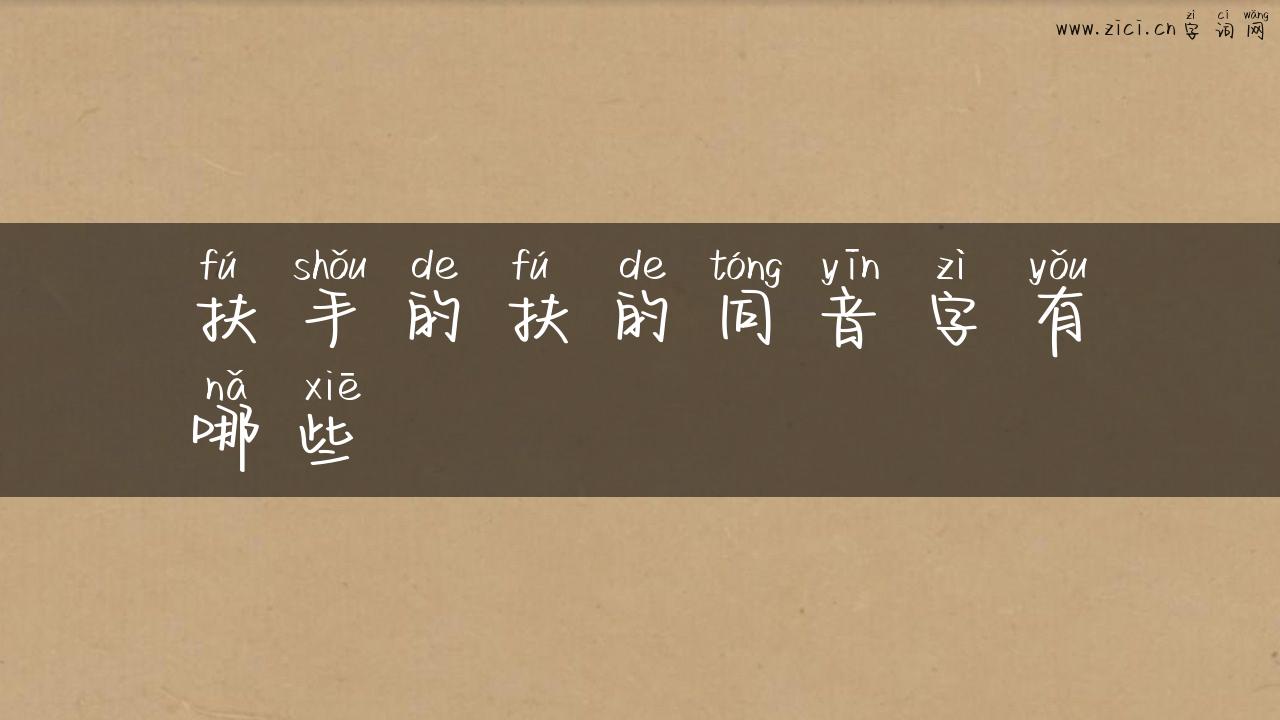 zì cí wǎng
www.zici.cn 字 词 网
fú shǒu de fú de tóng yīn zì yǒu
扶 手 的 扶 的 同 音 字 有
nǎ xiē
哪 些